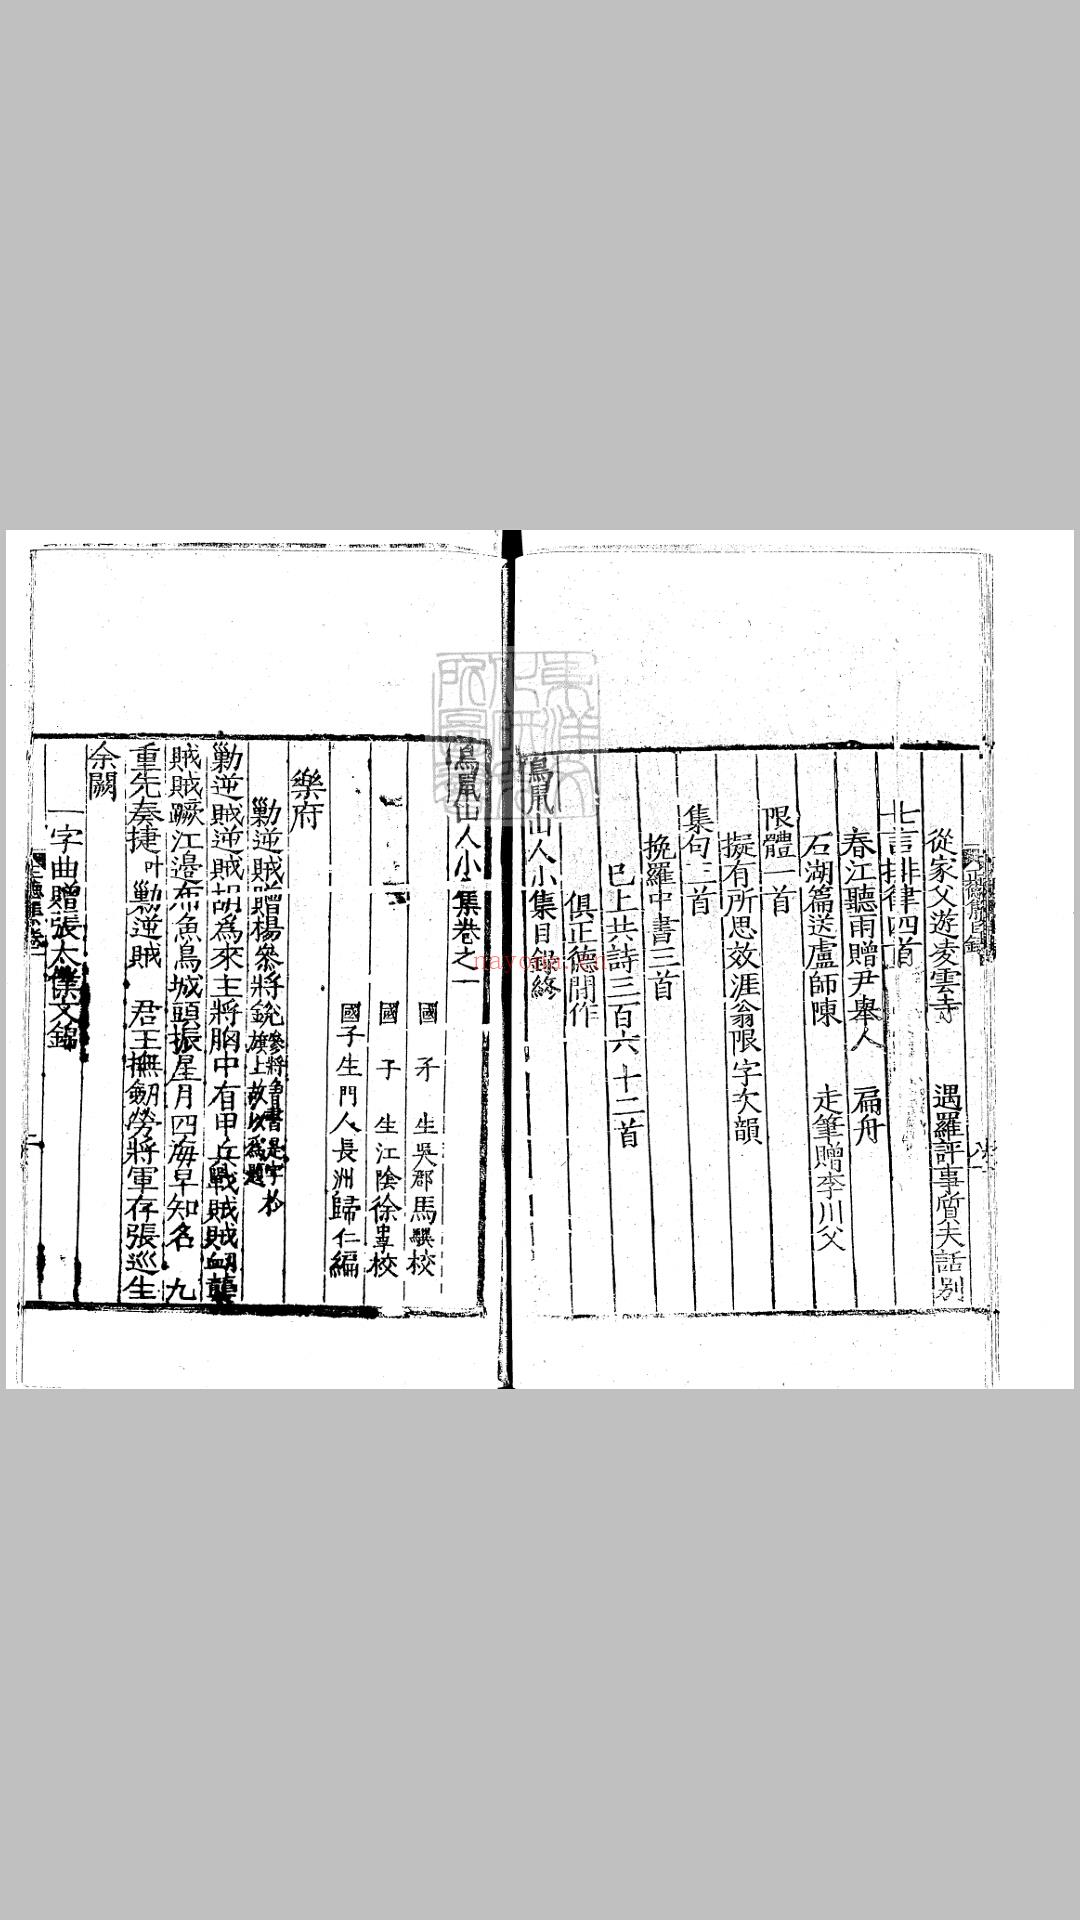 從家父遊凌雲寺　遇羅評事質夫話別
七言排律四首
春江聽雨贈尹舉人　扁舟
石湖篇送盧師陳　走筆贈李川父
限體一首
擬有所思效涯翁限字次韻
集句二首
挽羅中書三首
已上共詩三百六十二首
俱正德間作
鳥鼠山人小集目錄終
鳥鼠山人小集卷之一
國子生吳郡馬驥校
國子生江陰徐中孚校
國子生門人長洲歸仁編
樂府
勦逆賊贈楊叅將銳叅將書是字於旗上故以為題
勦逆賊逆賊胡為來主將胸中有甲兵戰賊賊衂襲
賊賊蹶江邊布魚鳥城頭振星月四海早知名九
重先奏捷叶勦逆賊　君王撫劒勞將軍存張巡生
余闕
一字曲贈張太僕文錦
nayona.cn